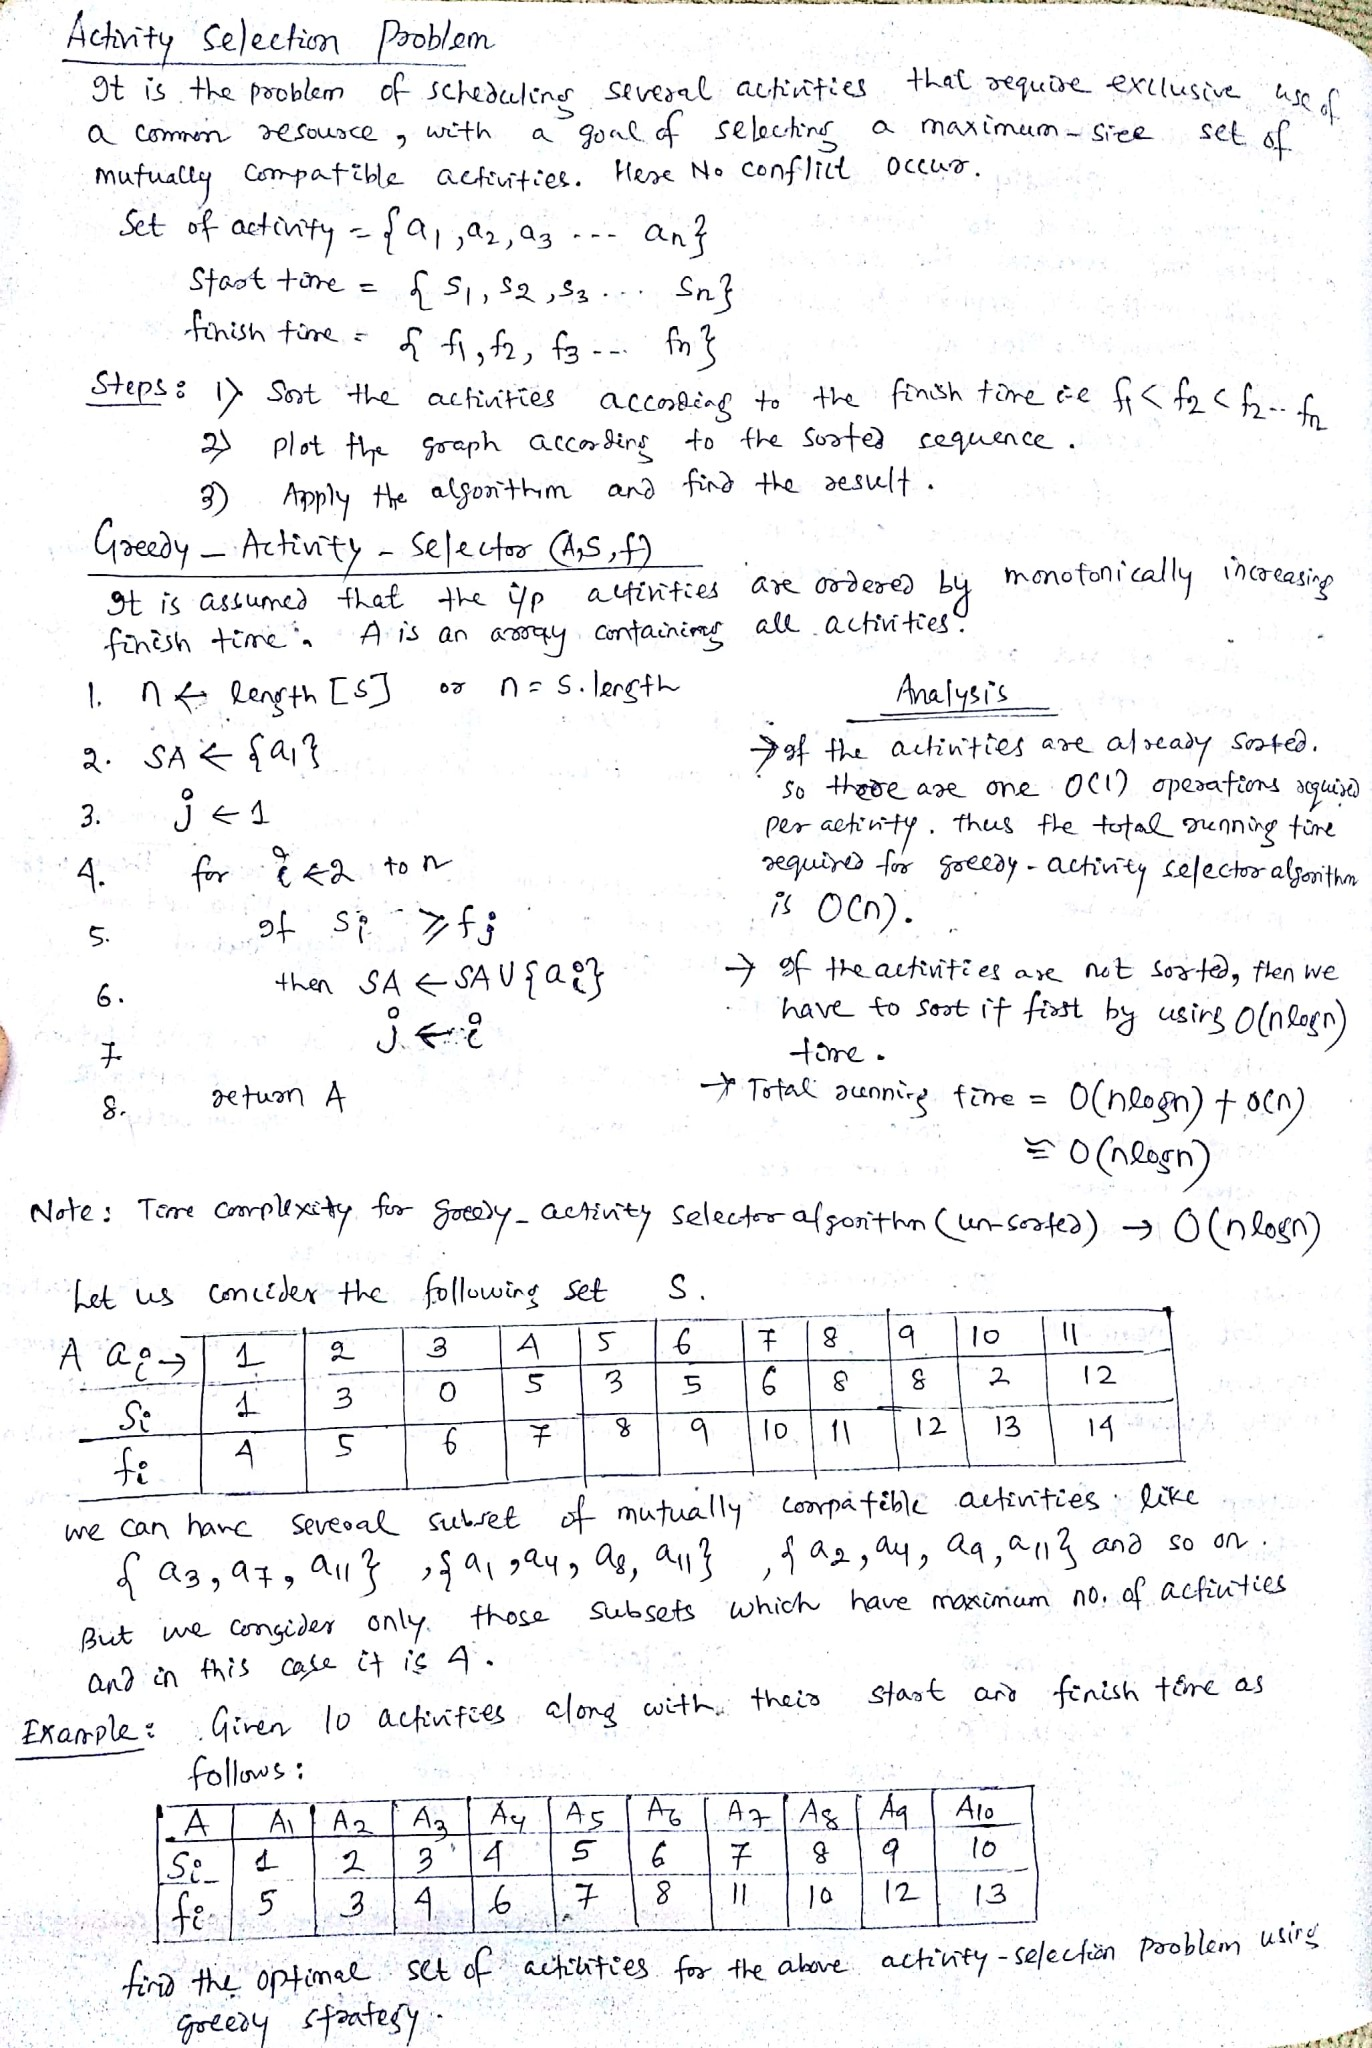 Activity Selection Problem
It is the problem of scheduling several activities that require exclusive use of
a common resource, with a goal of selecting a maximum-size set of
mutually compatible activities. Here No conflict occur.
Set of activity = {a1, a2, a3 --- an}
Start time = {s1, s2, s3 ... sn}
finish time = {f1, f2, f3 --- fn}
Steps: 1) Sort the activities according to the finish time i.e f1 < f2 < f2 -- fn
2) plot the graph according to the sorted sequence.
3) Apply the algorithm and find the result.
Greedy - Activity - Selector (A, S, f)
It is assumed that the i/p activities are ordered by monotonically increasing
finish time. A is an array containing all activities.
1. n ← length [S] or n = S.length
2. SA ← {a1}
3. j ← 1
4. for i ← 2 to n
5. If si ≥ fj
6. then SA ← SA U {ai}
7. j ← i
8. return A
Analysis
→ If the activities are already sorted.
so there are one O(1) operations required
per activity. Thus the total running time
required for greedy-activity selector algorithm
is O(n).
→ If the activities are not sorted, then we
have to sort it first by using O(nlogn)
time.
→ Total running time = O(nlogn) + O(n)
≅ O(nlogn)
Note: Time complexity for greedy-activity selector algorithm (un-sorted) → O(nlogn)
Let us concider the following set S.
A ai → 1 2 3 4 5 6 7 8 9 10 11
si 1 3 0 5 3 5 6 8 8 2 12
fi 4 5 6 7 8 9 10 11 12 13 14
we can have several subset of mutually compatible activities like
{a3, a7, a11}, {a1, a4, a8, a11}, {a2, a4, a9, a11} and so on.
But we congider only those subsets which have maximum no. of activities
and in this case it is 4.
Example: Given 10 activities along with their start and finish time as
follows:
A A1 A2 A3 A4 A5 A6 A7 A8 A9 A10
Si 1 2 3 4 5 6 7 8 9 10
fi 5 3 4 6 7 8 11 10 12 13
find the optimal set of activities for the above activity-selection problem using
greedy strategy.